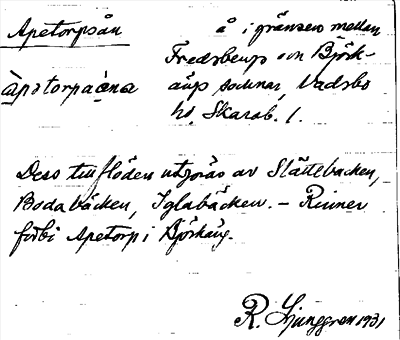 Apetorpsån
å i gränsen mellan
Fredsbergs och Björk-
ängs socknar, Vadsbo
hd, Skarab. l.
àpətorpaǹa
Dess tillflöden utgöras av Slättebacken,
Bodabäcken, Iglabäcken. – Rinner
förbi Apetorp i Björkäng.
R. Ljunggren 1931